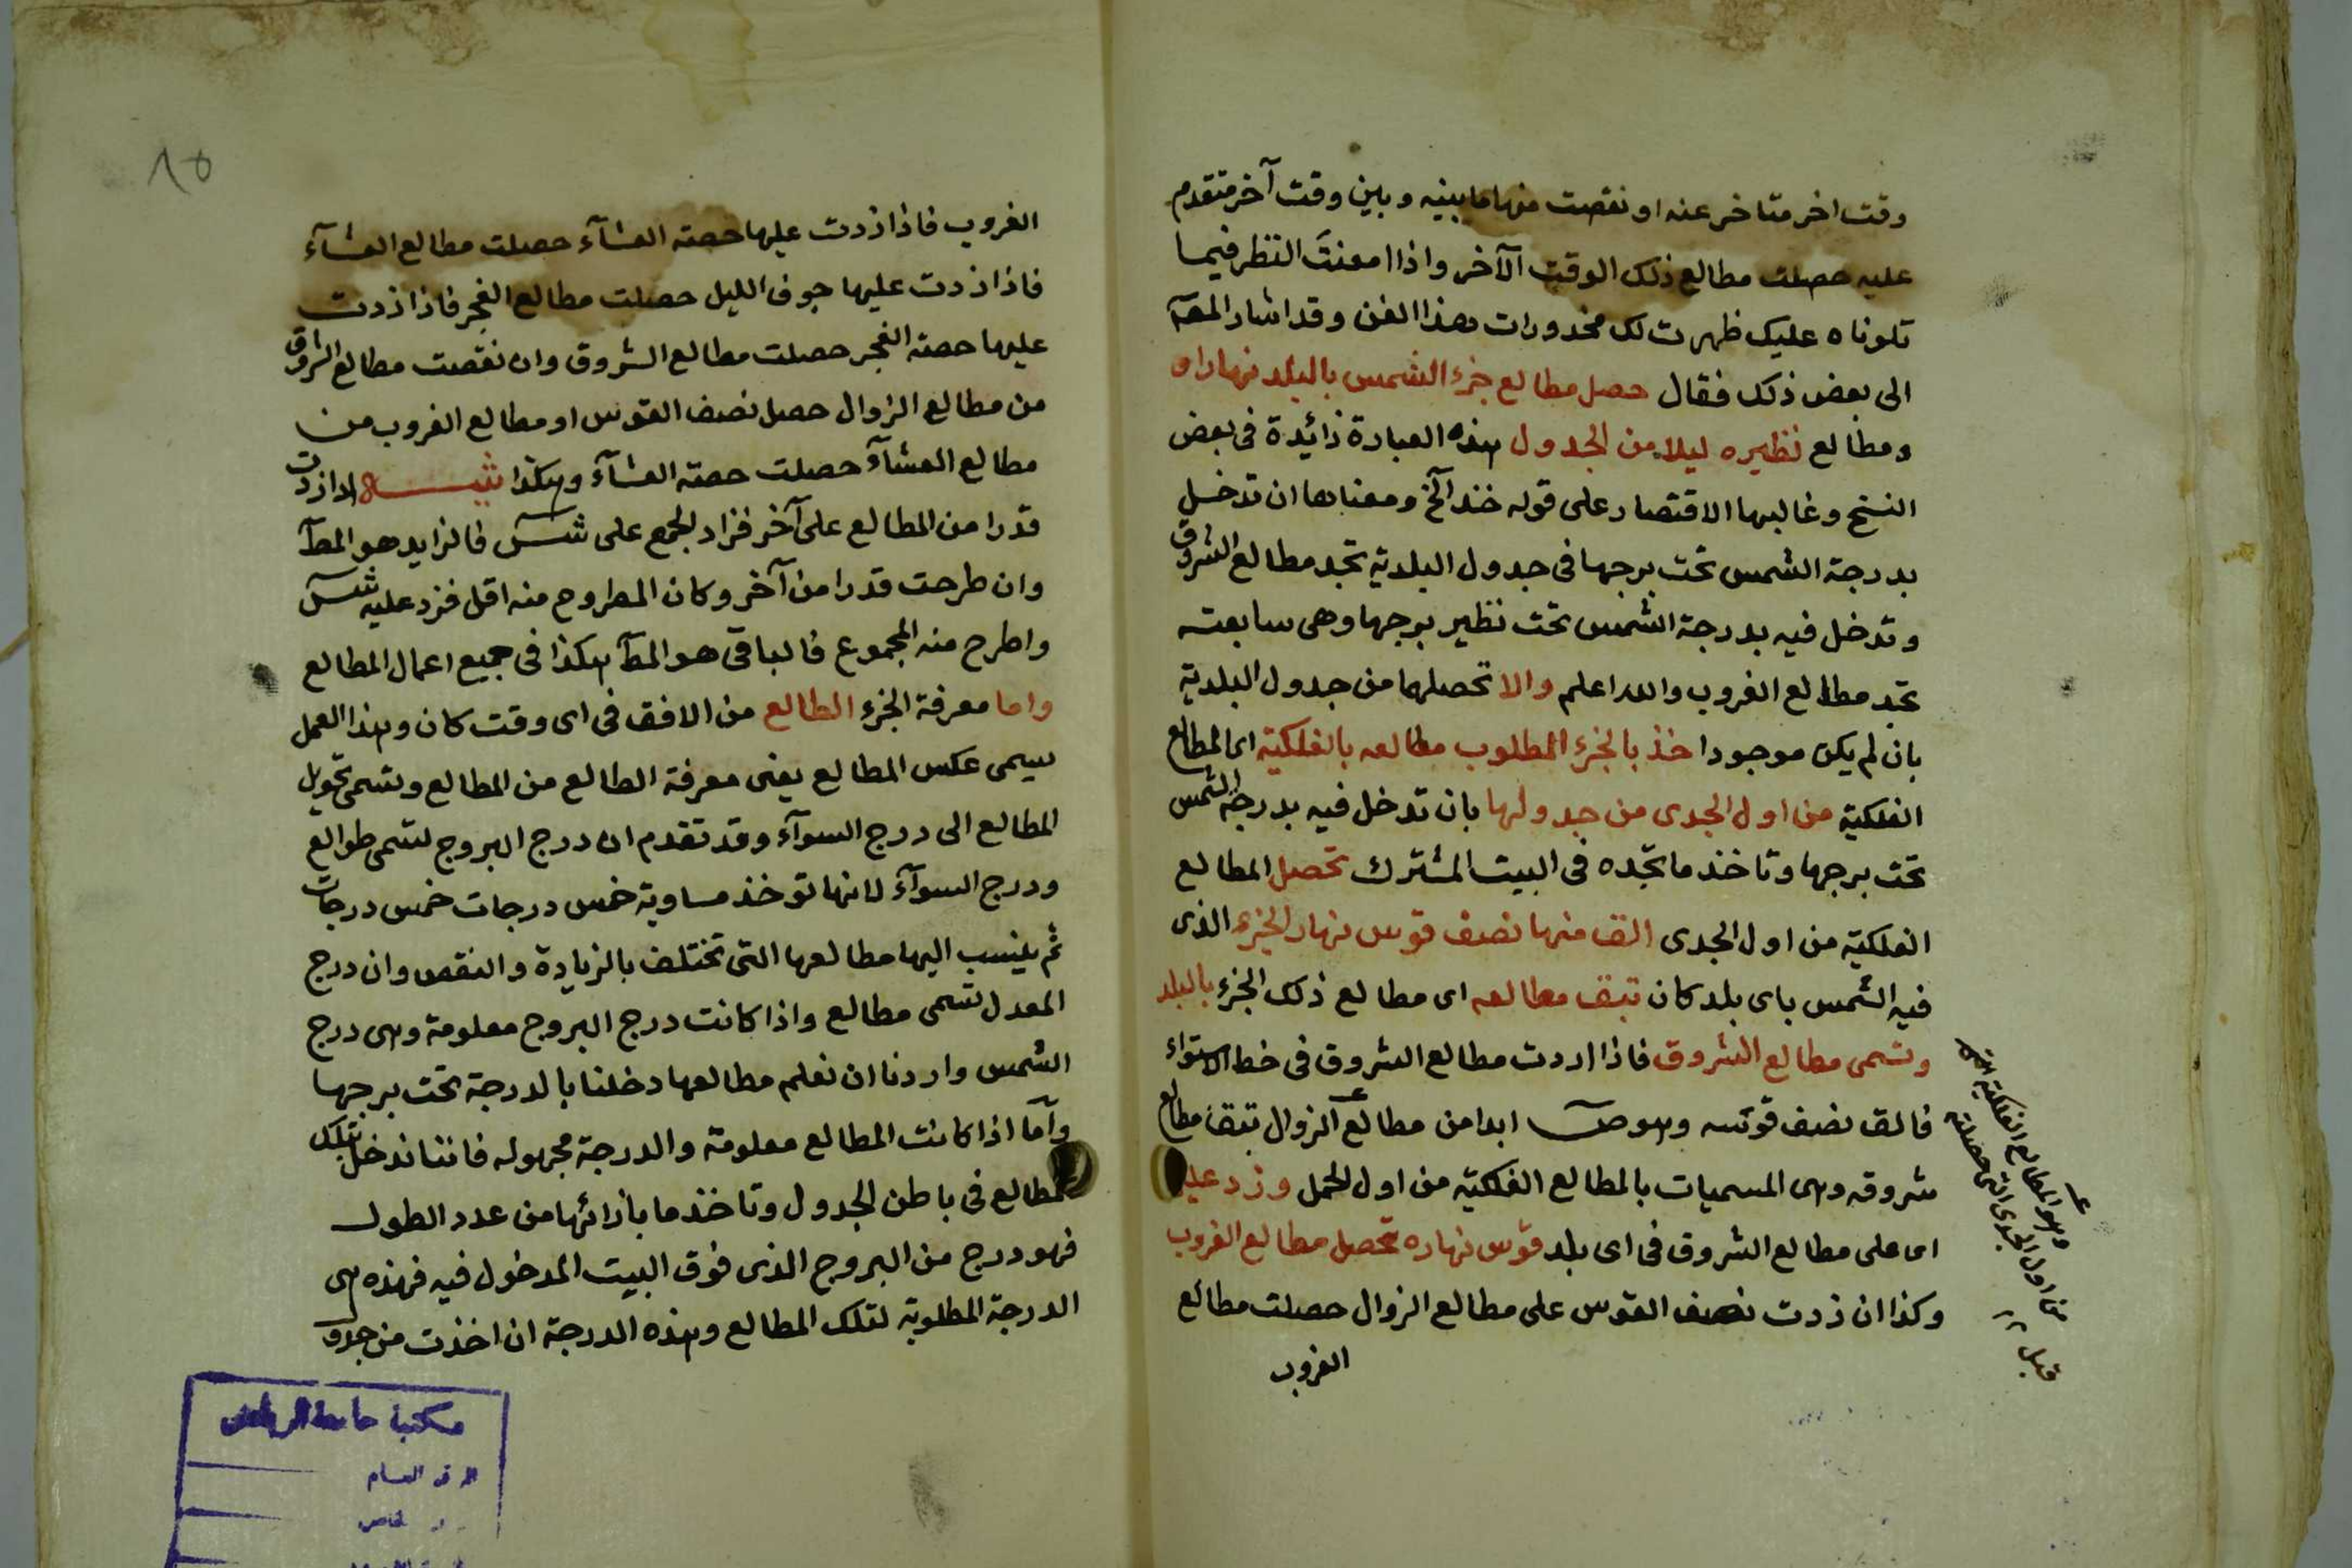 وقت اخر متاخر عنه او نقصت منها ما بينه وبين وقت آخر متقدم
عليه حصلت مطالع ذلك الوقت الآخر واذا امعنت النظر فيما
تلوناه عليك ظهرت لك مخدورات هذا الفن وقد اشار المصـ
الى بعض ذلك فقال حصل مطالع جزء الشمس بالبلد نهارا اى
ومطالع نظيره ليلا من الجدول هذه العبارة زائدة فى بعض
النسخ وغالبها الاقتصار على قوله خذ الخ ومعناها ان تدخل
بدرجة الشمس تحت برجها فى جدول البلدية تجد مطالع الشروق
وتدخل فيه بدرجة الشمس تحت نظير برجها وهى سابعته
تجد مطالع الغروب والله اعلم والا تحصلها من جدول البلدية
بان لم يكن موجودا خذ بالجزء المطلوب مطالعه بالفلكية اى المطالع
الفلكية من اول الجدى من جدولها بان تدخل فيه بدرجة الشمس
تحت برجها وتاخذ ما تجده فى البيت المشترك تحصل المطالع
الفلكية من اول الجدى الق منها نصف قوس نهار الجزء الذى
فيه الشمس باى بلد كان تبق مطالعه اى مطالع ذلك الجزء بالبلد
وتسمى مطالع الشروق فاذا اردت مطالع الشروق فى خط الاستواء
فالق نصف قوسه وهو ص ابدا من مطالع الزوال تبق مطالع
شروقه وهى المسميات بالمطالع الفلكية من اول الحمل وزد عليها
اى على مطالع الشروق فى اى بلد قوس نهاره تحصل مطالع الغروب
وكذا ان زدت نصف القوس على مطالع الزوال حصلت مطالع
الغروب
وهو المطالع الفلكية
من اول الجدى التى حصلت
قبل
٨٥
الغروب فاذا زدت عليها حصة العشآء حصلت مطالع العشآء
فاذا زدت عليها جوف الليل حصلت مطالع الفجر فاذا زدت
عليها حصة الفجر حصلت مطالع الشروق وان نقصت مطالع الشروق
من مطالع الزوال حصل نصف القوس او مطالع الغروب من
مطالع العشآء حصلت حصة العشآء وهكذا تنبيه اذا زدت
قدرا من المطالع على آخر فزاد الجمع على شس فالزايد هو المط
وان طرحت قدرا من آخر وكان المطروح منه اقل فزد عليه شس
واطرح منه المجموع فالباقى هو المط هكذا فى جميع اعمال المطالع
واما معرفة الجزء الطالع من الافق فى اى وقت كان وهذا العمل
يسمى عكس المطالع يعنى معرفة الطالع من المطالع وتسمى تحويل
المطالع الى درج السوآء وقد تقدم ان درج البروج تسمى طوالع
ودرج السوآء لانها توخذ مساوية خمس درجات خمس درجات
ثم ينسب اليها مطالعها التى تختلف بالزيادة والنقص وان درج
المعدل تسمى مطالع واذا كانت درج البروج معلومة وهى درج
الشمس واردنا ان نعلم مطالعها دخلنا بالدرجة تحت برجها
وأما اذا كانت المطالع معلومة والدرجة مجهوله فاننا ندخل بتلك
المطالع فى باطن الجدول وتاخذ ما بازائها من عدد الطول
فهو درج من البروج الذى فوق البيت المدخول فيه فهذه هى
الدرجة المطلوبة لتلك المطالع وهذه الدرجة ان اخذت من جدول
مكتبة جامعة الرياض
الرقم العام